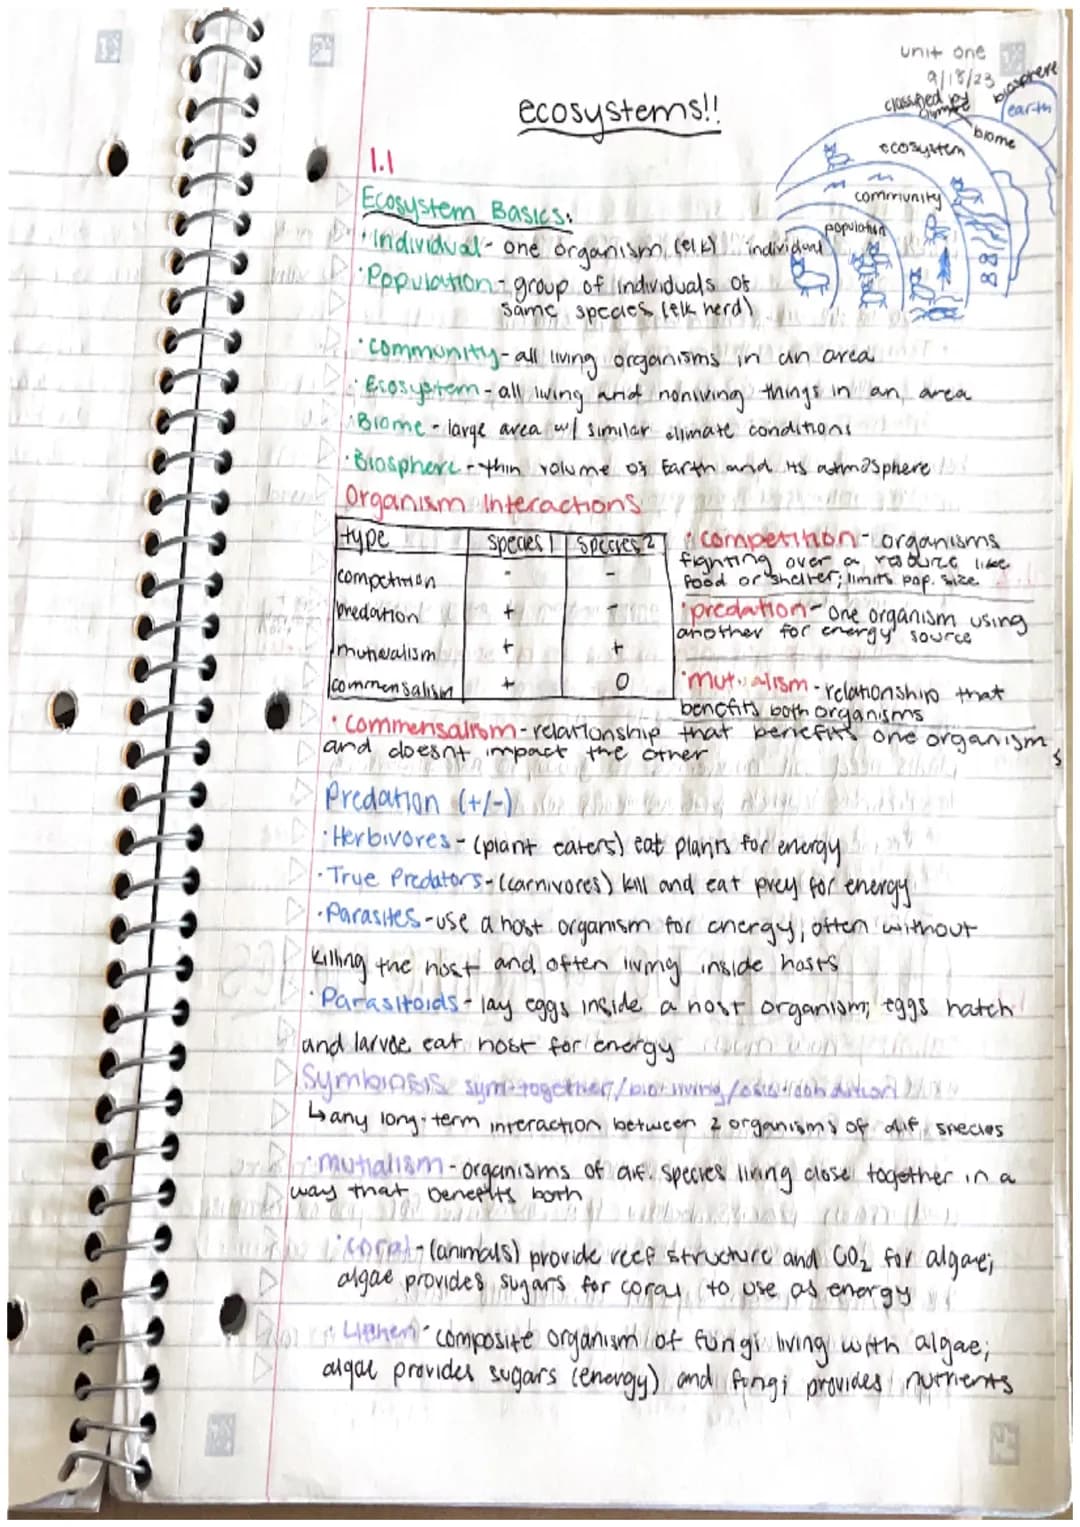 unit one
9/18/23
classified by climate
biosphere
earth
biome
ecosystem
community
population
individual
ecosystems!!
1.1
Ecosystem Basics:
· Individual - one organism (elk)
· Population - group of individuals of
same species (elk herd)
· Community - all living organisms in an area
· Ecosystem - all living and nonliving things in an area
· Biome - large area w/ similar climate conditions
· Biosphere - thin volume of Earth and its atmosphere
Organism Interactions
type species 1 species 2
competition - -
predation + -
mutualism + +
commensalism + 0
· competition - organisms
fighting over a resource like
food or shelter; limits pop. size
· predation - one organism using
another for energy source
· mutualism - relationship that
benefits both organisms
· Commensalism - relationship that benefits one organism
and doesnt impact the other
Predation (+/-)
· Herbivores - (plant eaters) eat plants for energy
· True Predators - (carnivores) kill and eat prey for energy
· Parasites - use a host organism for energy, often without
killing the host and often living inside hosts
· Parasitoids - lay eggs inside a host organism; eggs hatch
and larvae eat host for energy
Symbiosis sym-together/bio-living/osis-condition
↳ any long-term interaction between 2 organisms of dif. species
· mutialism - organisms of dif. species living close together in a
way that benefits both
· coral - (animals) provide reef structure and CO₂ for algae;
algae provides sugars for coral to use as energy
· Lichen - composite organism of fungi living with algae;
algae provides sugars (energy) and fungi provides nutrients